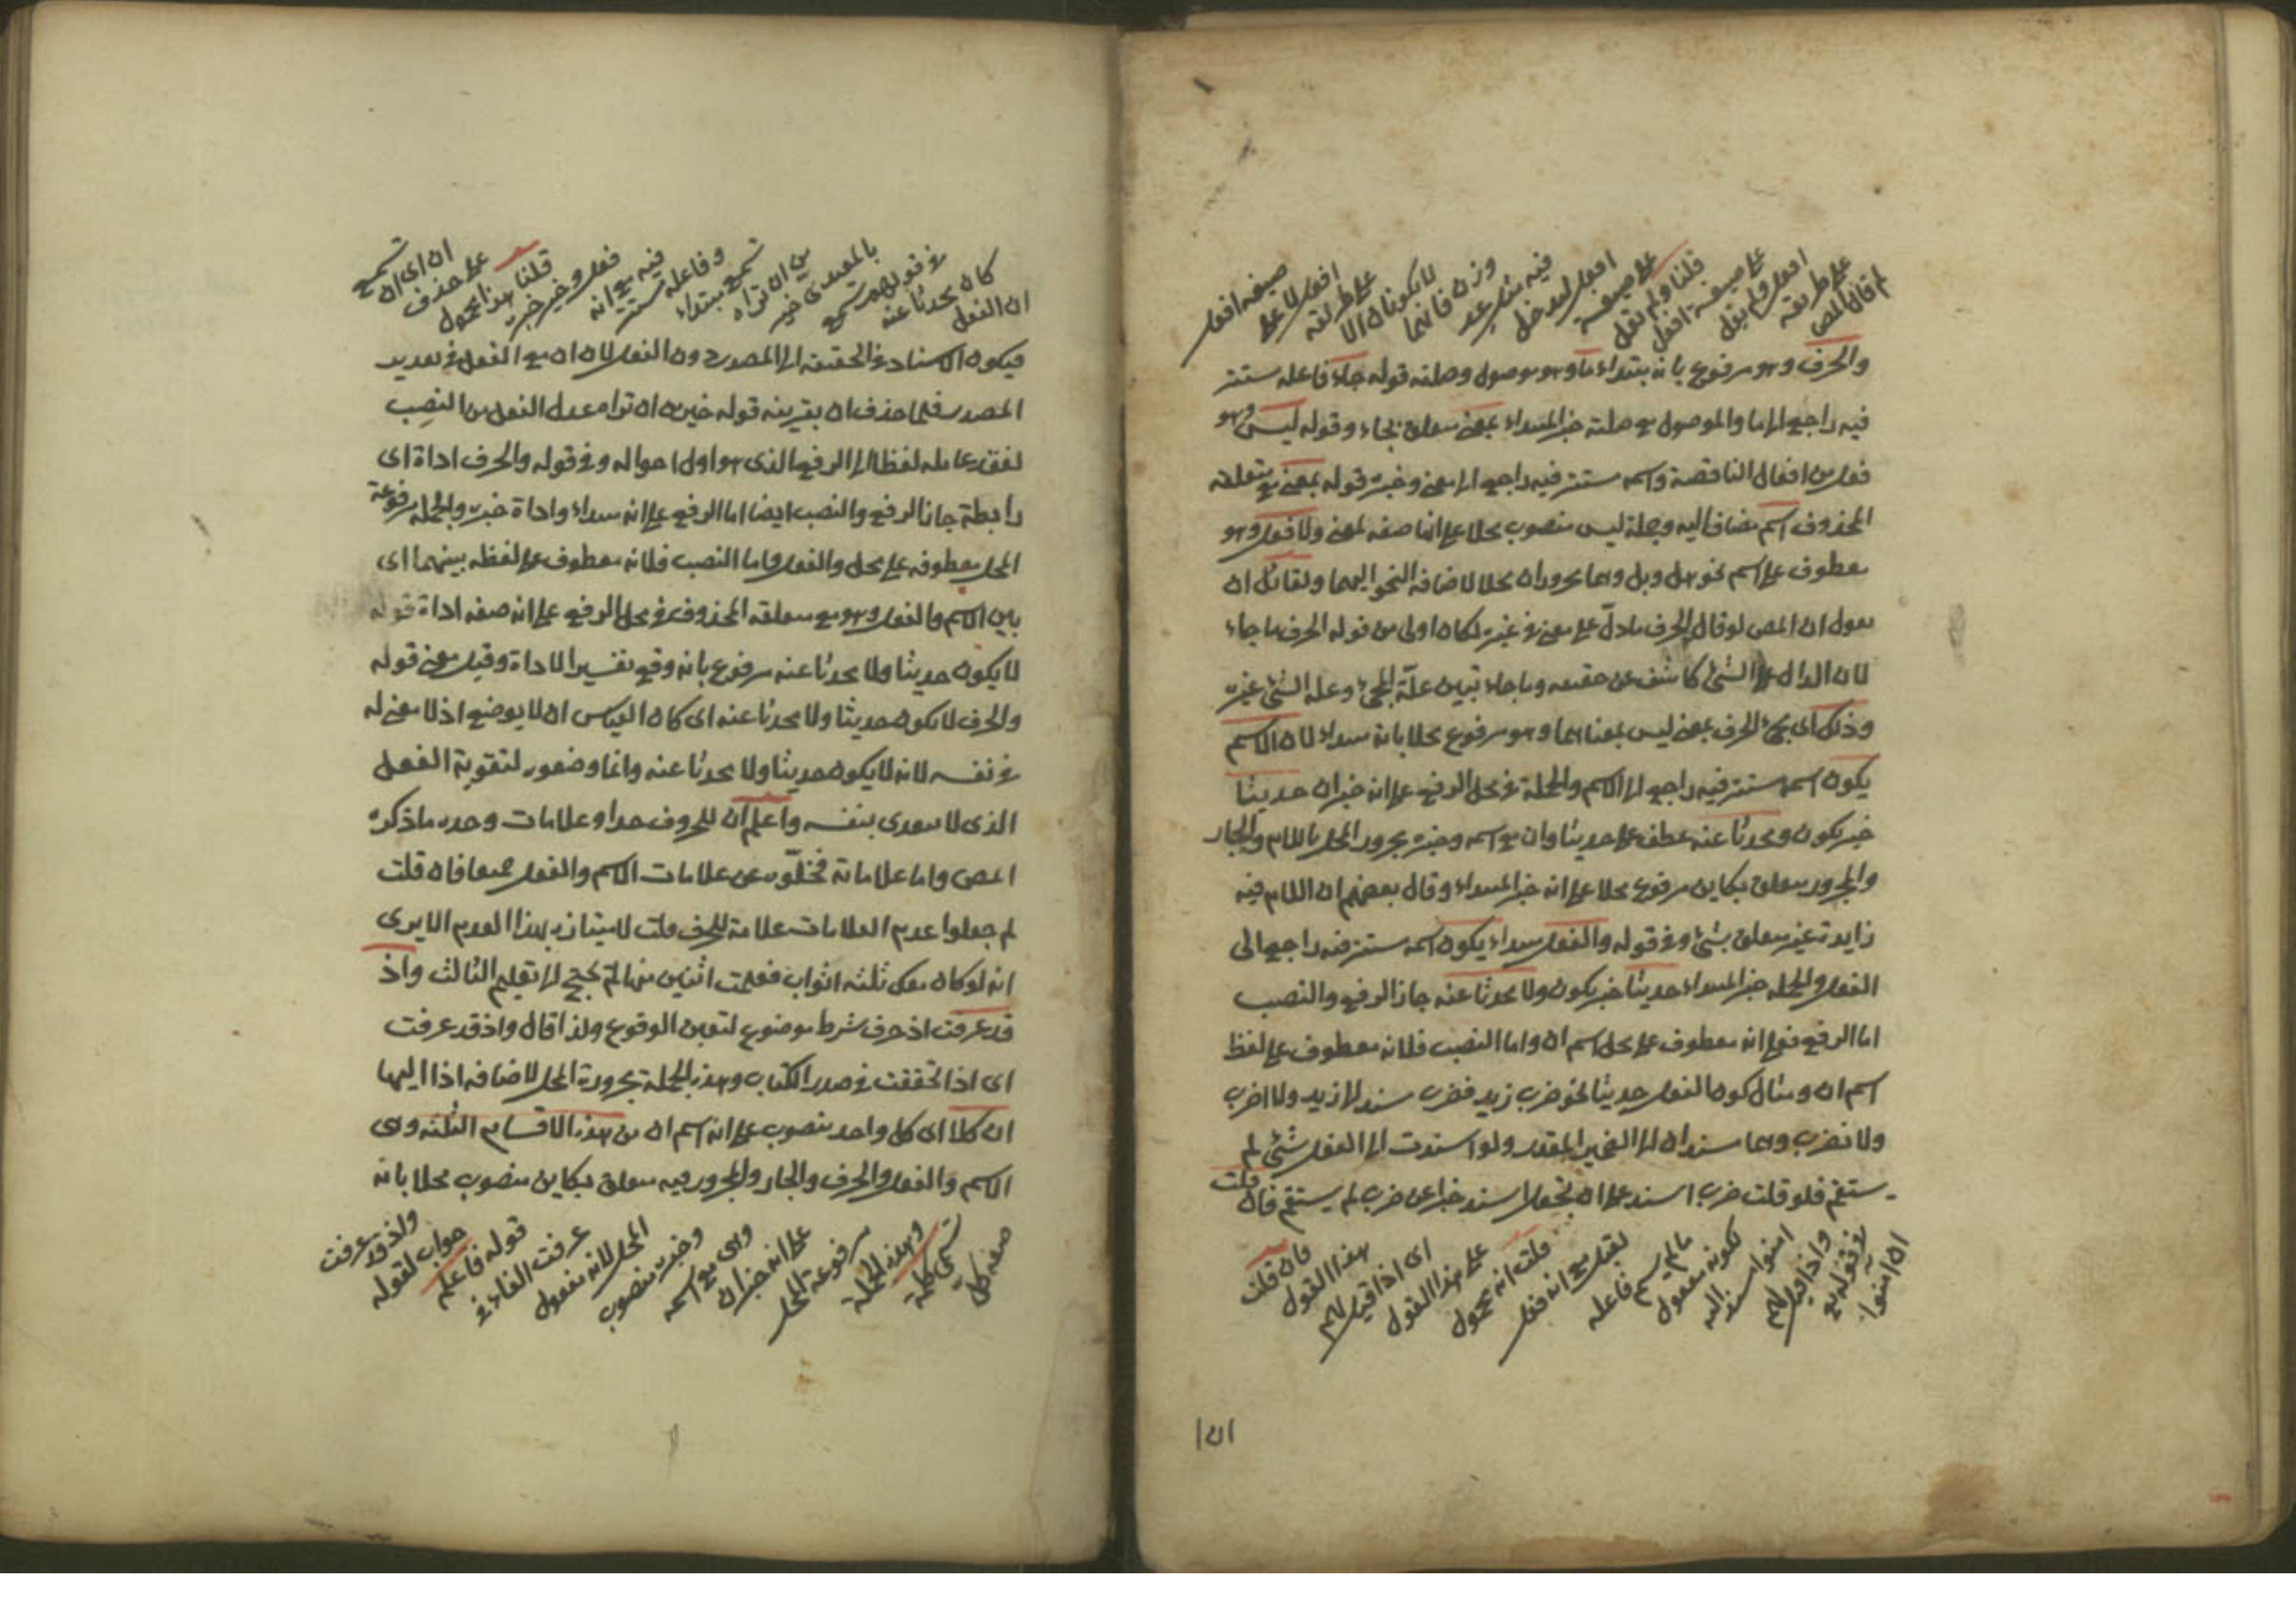 لم قال المص
على طريقة
افعل ولم يقل
على صيغة افعل
قلنا ولم نقل
على صيغة
افعل ليدخل
فيه
وزن فانهما
لا يكونان الا
على طريقة
افعل لا على
صيغة افعل
والحرف وهو مرفوع بانه مبتداء ما وهو موصول وصلته قوله جاء فاعله مستتر
فيه راجع الى ما والموصول مع صلته خبر المبتداء بمعنى متعلق بجاء وقوله ليس وهو
فعل من افعال الناقصة واسمه مستتر فيه راجع الى معنى وخبره قوله بمعنى مع متعلقه
المحذوف اسم مضاف اليه وجملة ليس منصوب محلا على انها صفه لمعنى ولا فعل وهو
معطوف على اسم نحو هل وبل وهما مجروران محلا لاضافة النحو اليهما ولقائل ان
يقول ان المص لو قال الحرف ما دلّ على معنى فى غيره لكان اولى من قوله الحرف ما جاء
لان الدال على الشئ كاشف عن حقيقته وما جاء تبيين علّة المجئ وعلة الشئ غيره
وذلك اى مجئ الحرف بمعنى ليس بمعناهما وهو مرفوع محلا بانه مبتداء لان الاسم
يكون اسمه مستتر فيه راجع الى الاسم والجملة فى محل الرفع على انه خبر ان حديثا
خبر يكون ومحدثا عنه عطف على حديثا وان مع اسمه وخبره مجرور المحل باللام والجار
والمجرور متعلق بكاين مرفوع محلا على انه خبر المبتداء وقال بعضهم ان اللام فيه
زايدة غير متعلق بشئ وفى قوله والفعل مبتداء يكون اسمه مستتر فيه راجع الى
الفعل والجمله خبر المبتداء حديثا خبر يكون ولا محدثا عنه جاز الرفع والنصب
اما الرفع فعلى انه معطوف على محل اسم ان واما النصب فلانه معطوف على لفظ
اسم ان ومثال كون الفعل حديثا نحو ضرب زيد فضرب مسند الى زيد ولا اضرب
ولا نضرب وهما مسندان الى الضمير المقدر ولو اسندت الى الفعل شئ لم
يستقم فلو قلت ضرب اسند على ان تجعل اسند خبرا عن ضرب لم يستقم فان قلت
ان امنوا
فى قوله تع
واذا قيل لهم
امنوا مسند اليه
لكونه مفعول
ما لم يسم فاعله
مع انه فعل
قلت انه محمول
على هذا القول
اى اذا قيل لهم
هذا القول
فان قلت
ان الفعل
كان محدثا عنه
فى قولهم تسمع
بالمعيدى خير
من ان تراه
تسمع مبتداء
وفاعله مستتر
فيه مع انه
فعل وخير خبره
قلنا هذا محمول
على حذف
ان اى ان تسمع
فيكون الاسناد فى الحقيقة الى المصدر دون الفعل لان ان مع الفعل فى تقدير
المصدر فلما حذف ان بقرينه قوله خير من ان تراه عدل الفعل من النصب
لفقد عامله لفظا الى الرفع الذى هو اول احواله وفى قوله والحرف اداة اى
رابطة جاز الرفع والنصب ايضا اما الرفع على انه مبتداء واداة خبره والجمله مرفوعة
المحل معطوفه على محل والفعل واما النصب فلانه معطوف على لفظه بينهما اى
بين الاسم والفعل وهو مع متعلقه المحذوف فى محل الرفع على انه صفه اداة قوله
لا يكون حديثا ولا محدثا عنه مرفوع بانه وقع تفسيرا لاداة وقيل معنى قوله
والحرف لا يكون حديثا ولا محدثا عنه اى كان القياس ان لا يوضع اذ لا معنى له
فى نفسه لانه لا يكون حديثا ولا محدثا عنه وانما وضعوه لتقوية الفعل
الذى لا يتعدى بنفسه واعلم ان للحروف حدا وعلامات وحده ما ذكره
المص واما علاماته فخلّوه عن علامات الاسم والفعل جميعا فان قلت
لم جعلوا عدم العلامات علامة للحرف قلت لامتيازه بهذا العدم الا يرى
انه لو كان معك ثلثه اثواب فعلمت اثنين منها لم تحتج الى تعليم الثالث واذ
قد عرفت اذ حرف شرط موضوع لتعين الوقوع ولذا قال واذ قد عرفت
اى اذ تحققت فى صدر الكتاب وهذه الجملة مجرورة المحل لاضافة اذا اليها
ان كلا اى كل واحد منصوب على انه اسم ان من هذه الاقسام الثلثه وهى
الاسم والفعل والحرف والجار والمجرور فيه متعلق بكاين منصوب محلا بانه
صفه كل
تسمى كلمة
وهذه الجملة
مرفوعة المحل
على انه خبر ان
وهى مع اسمه
وخبره منصوب
المحل لانه مفعول
عرفت الفاء فى
قوله فاعلم
جواب لقوله
واذ قد عرفت
ان